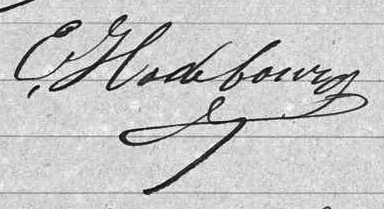 E. Hadebourg